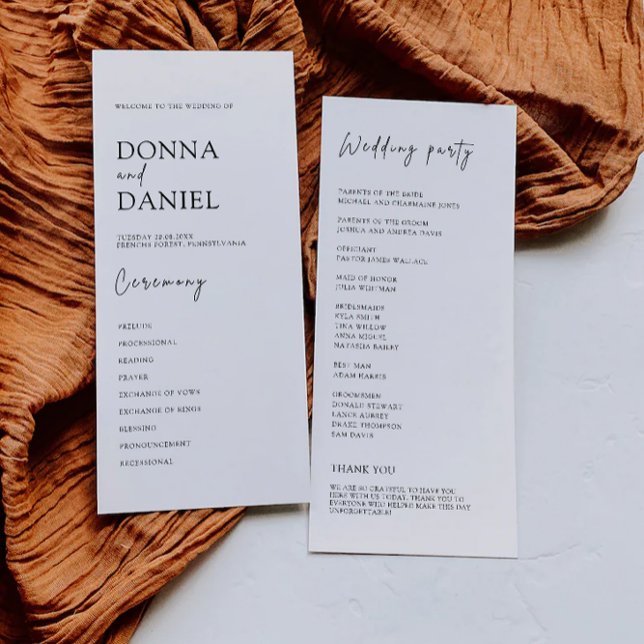 WELCOME TO THE WEDDING OF
DONNA
and
DANIEL
TUESDAY 29.08.20XX
FRENCHS FOREST, PENNSYLVANIA
Ceremony
PRELUDE
PROCESSIONAL
READING
PRAYER
EXCHANGE OF VOWS
EXCHANGE OF RINGS
BLESSING
PRONOUNCEMENT
RECESSIONAL
Wedding party
PARENTS OF THE BRIDE
MICHAEL AND CHARMAINE JONES
PARENTS OF THE GROOM
JOSHUA AND ANDREA DAVIS
OFFICIANT
PASTOR JAMES WALLACE
MAID OF HONOR
JULIA WHITMAN
BRIDESMAIDS
KYLA SMITH
TINA WILLOW
ANNA MIGUEL
NATASHA BAILEY
BEST MAN
ADAM HARRIS
GROOMSMEN
DONALD STEWART
LANCE AUBREY
DRAKE THOMPSON
SAM DAVIS
THANK YOU
WE ARE SO GRATEFUL TO HAVE YOU
HERE WITH US TODAY. THANK YOU TO
EVERYONE WHO HELPED MAKE THIS DAY
UNFORGETTABLE!